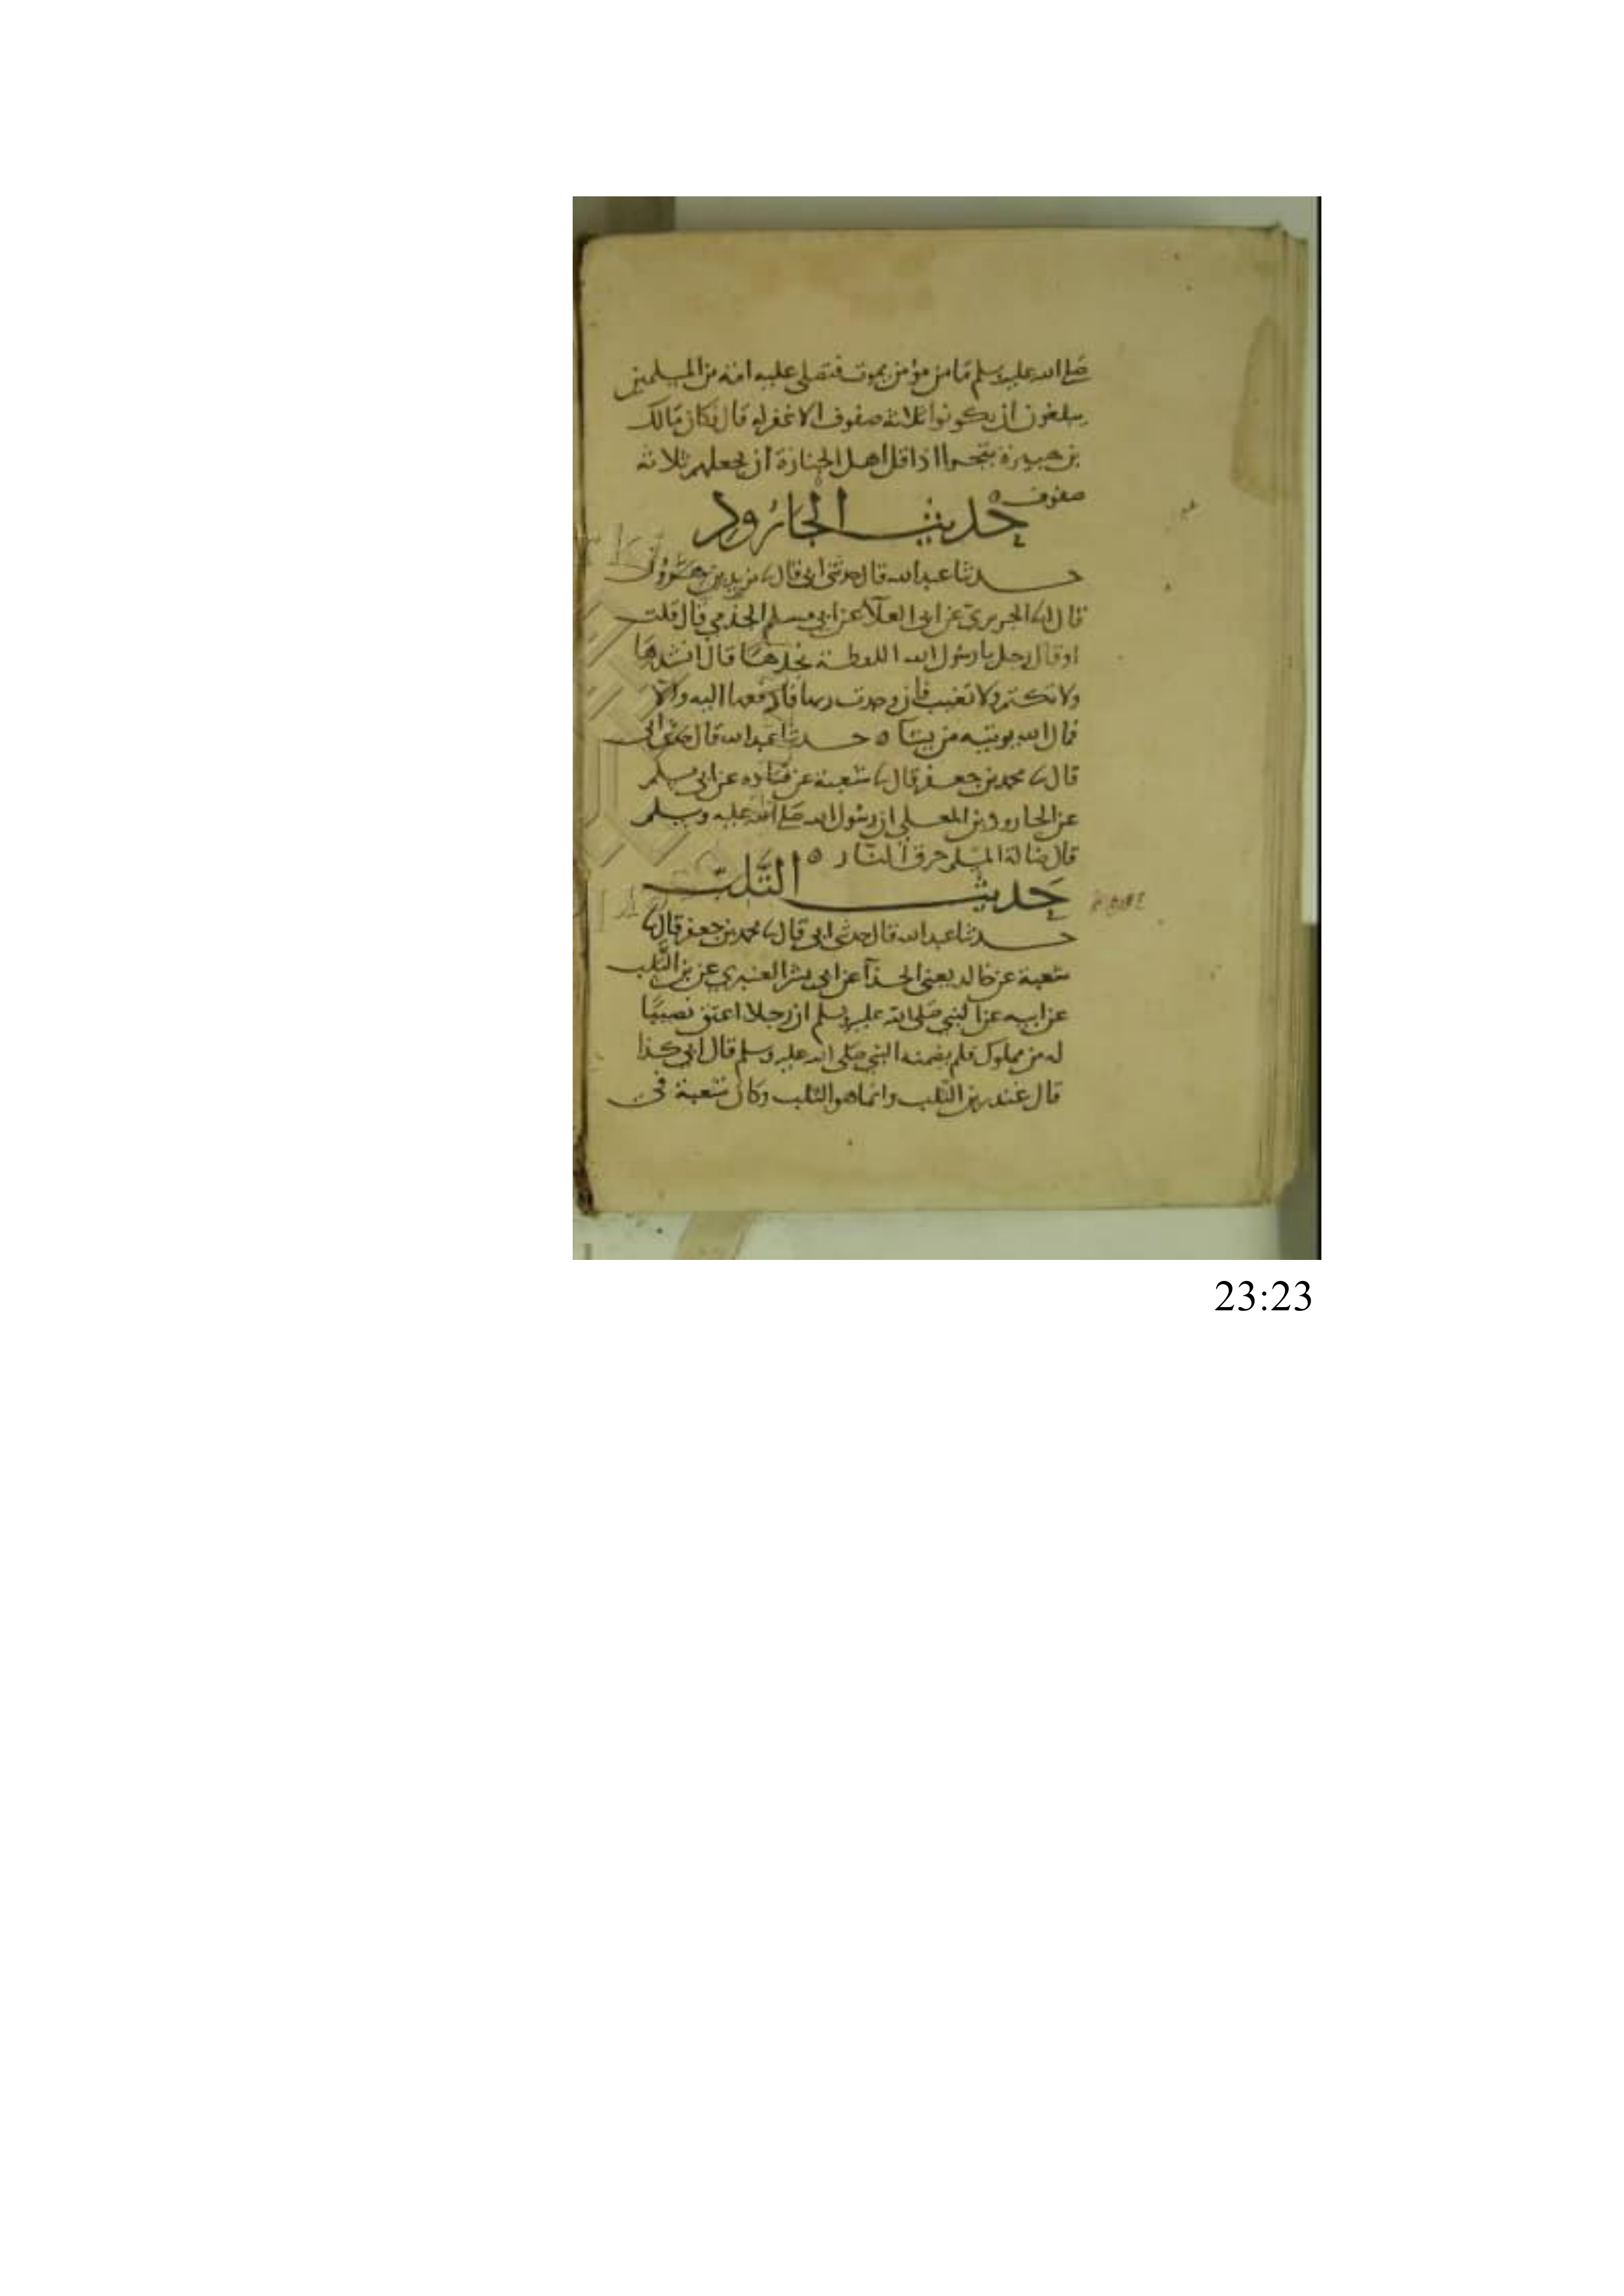 صلى الله عليه وسلم ما من مؤمن يموت فتصلى عليه امة من المسلمين
يبلغون ان يكونوا ثلاثة صفوف الا غفر له قال فكان مالك
بن هبيرة يتحرا اذا قل اهل الجنازة ان يجعلهم ثلاثة
صفوف ه
حديث الجارود
حدثنا عبد الله قال حدثنى ابى قال ثنا يزيد بن هرون
قال انا الجريري عن ابى العلآ عن ابي مسلم الجذمي قال قلت
او قال رجل يا رسول الله اللقطة نجدها قال انشدها
ولا تكتم ولا تغيب فان وجدت ربها فادفعها اليه والا
فمال الله يوتيه من يشآ ه حدثنا عبد الله قال حدثنى ابى
قال ثنا محمد بن جعفر قال ثنا شعبة عن قتاده عن ابى مسلم
عن الجارود بن المعلى ان رسول الله صلى الله عليه وسلم
قال ضالة المسلم حرق النار ه
حديث التلب
حدثنا عبد الله قال حدثنى ابى قال ثنا محمد بن جعفر قال ثنا
شعبة عن خالد يعنى الحذآ عن ابى بشر العنبري عن بن الثلب
عن ابيه عن النبي صلى الله عليه وسلم ان رجلا اعتق نصيبا
له من مملوك فلم يضمنه النبي صلى الله عليه وسلم قال ابى كذا
قال غندر بن الثلب وانما هو التلب وكان شعبة فى
23:23